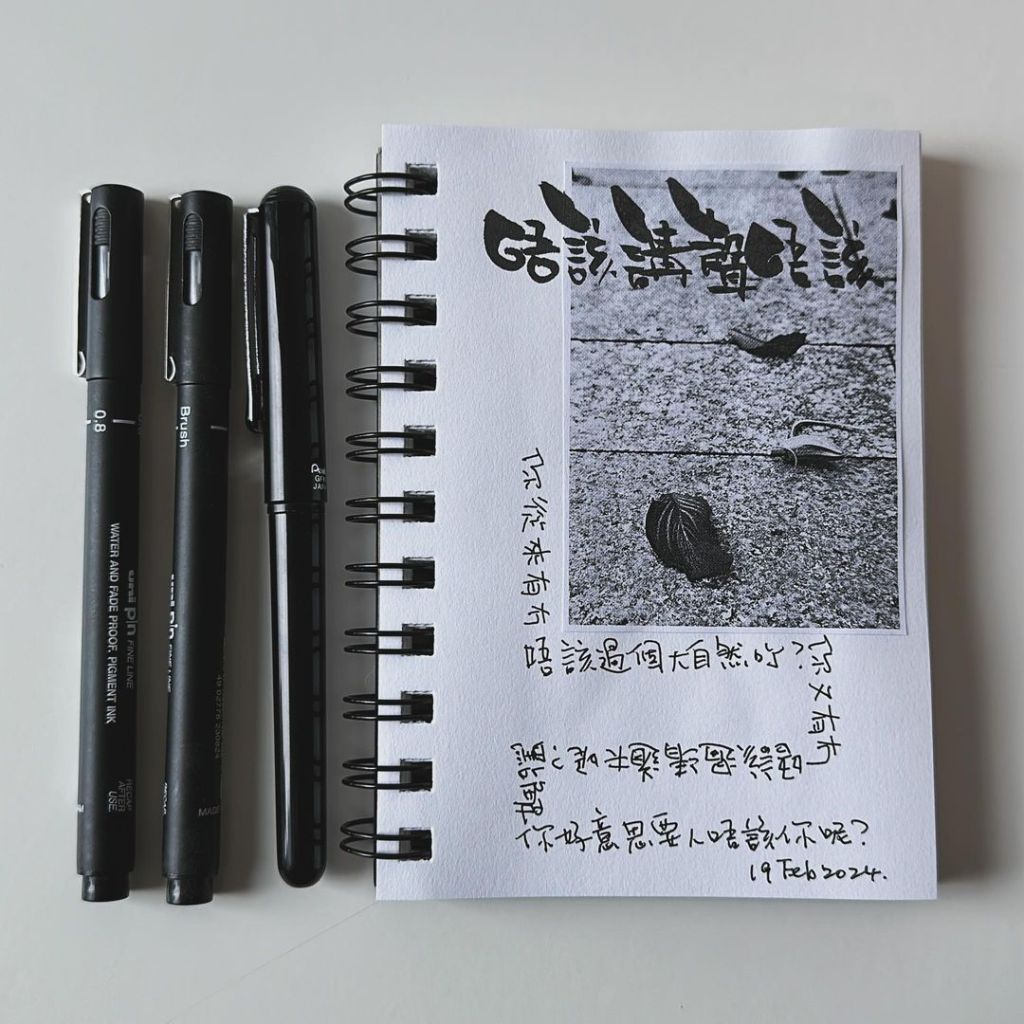 唔該講聲唔該
你從來有冇
唔該過個大自然呀?
你又有冇
唔該過清道夫呢?
點解
你好意思要人唔該你呢?
19 Feb 2024.
0.8
uni pin FINE LINE
WATER AND FADE PROOF, PIGMENT INK
RECAP
AFTER
USE.
Brush
uni pin FINE LINE